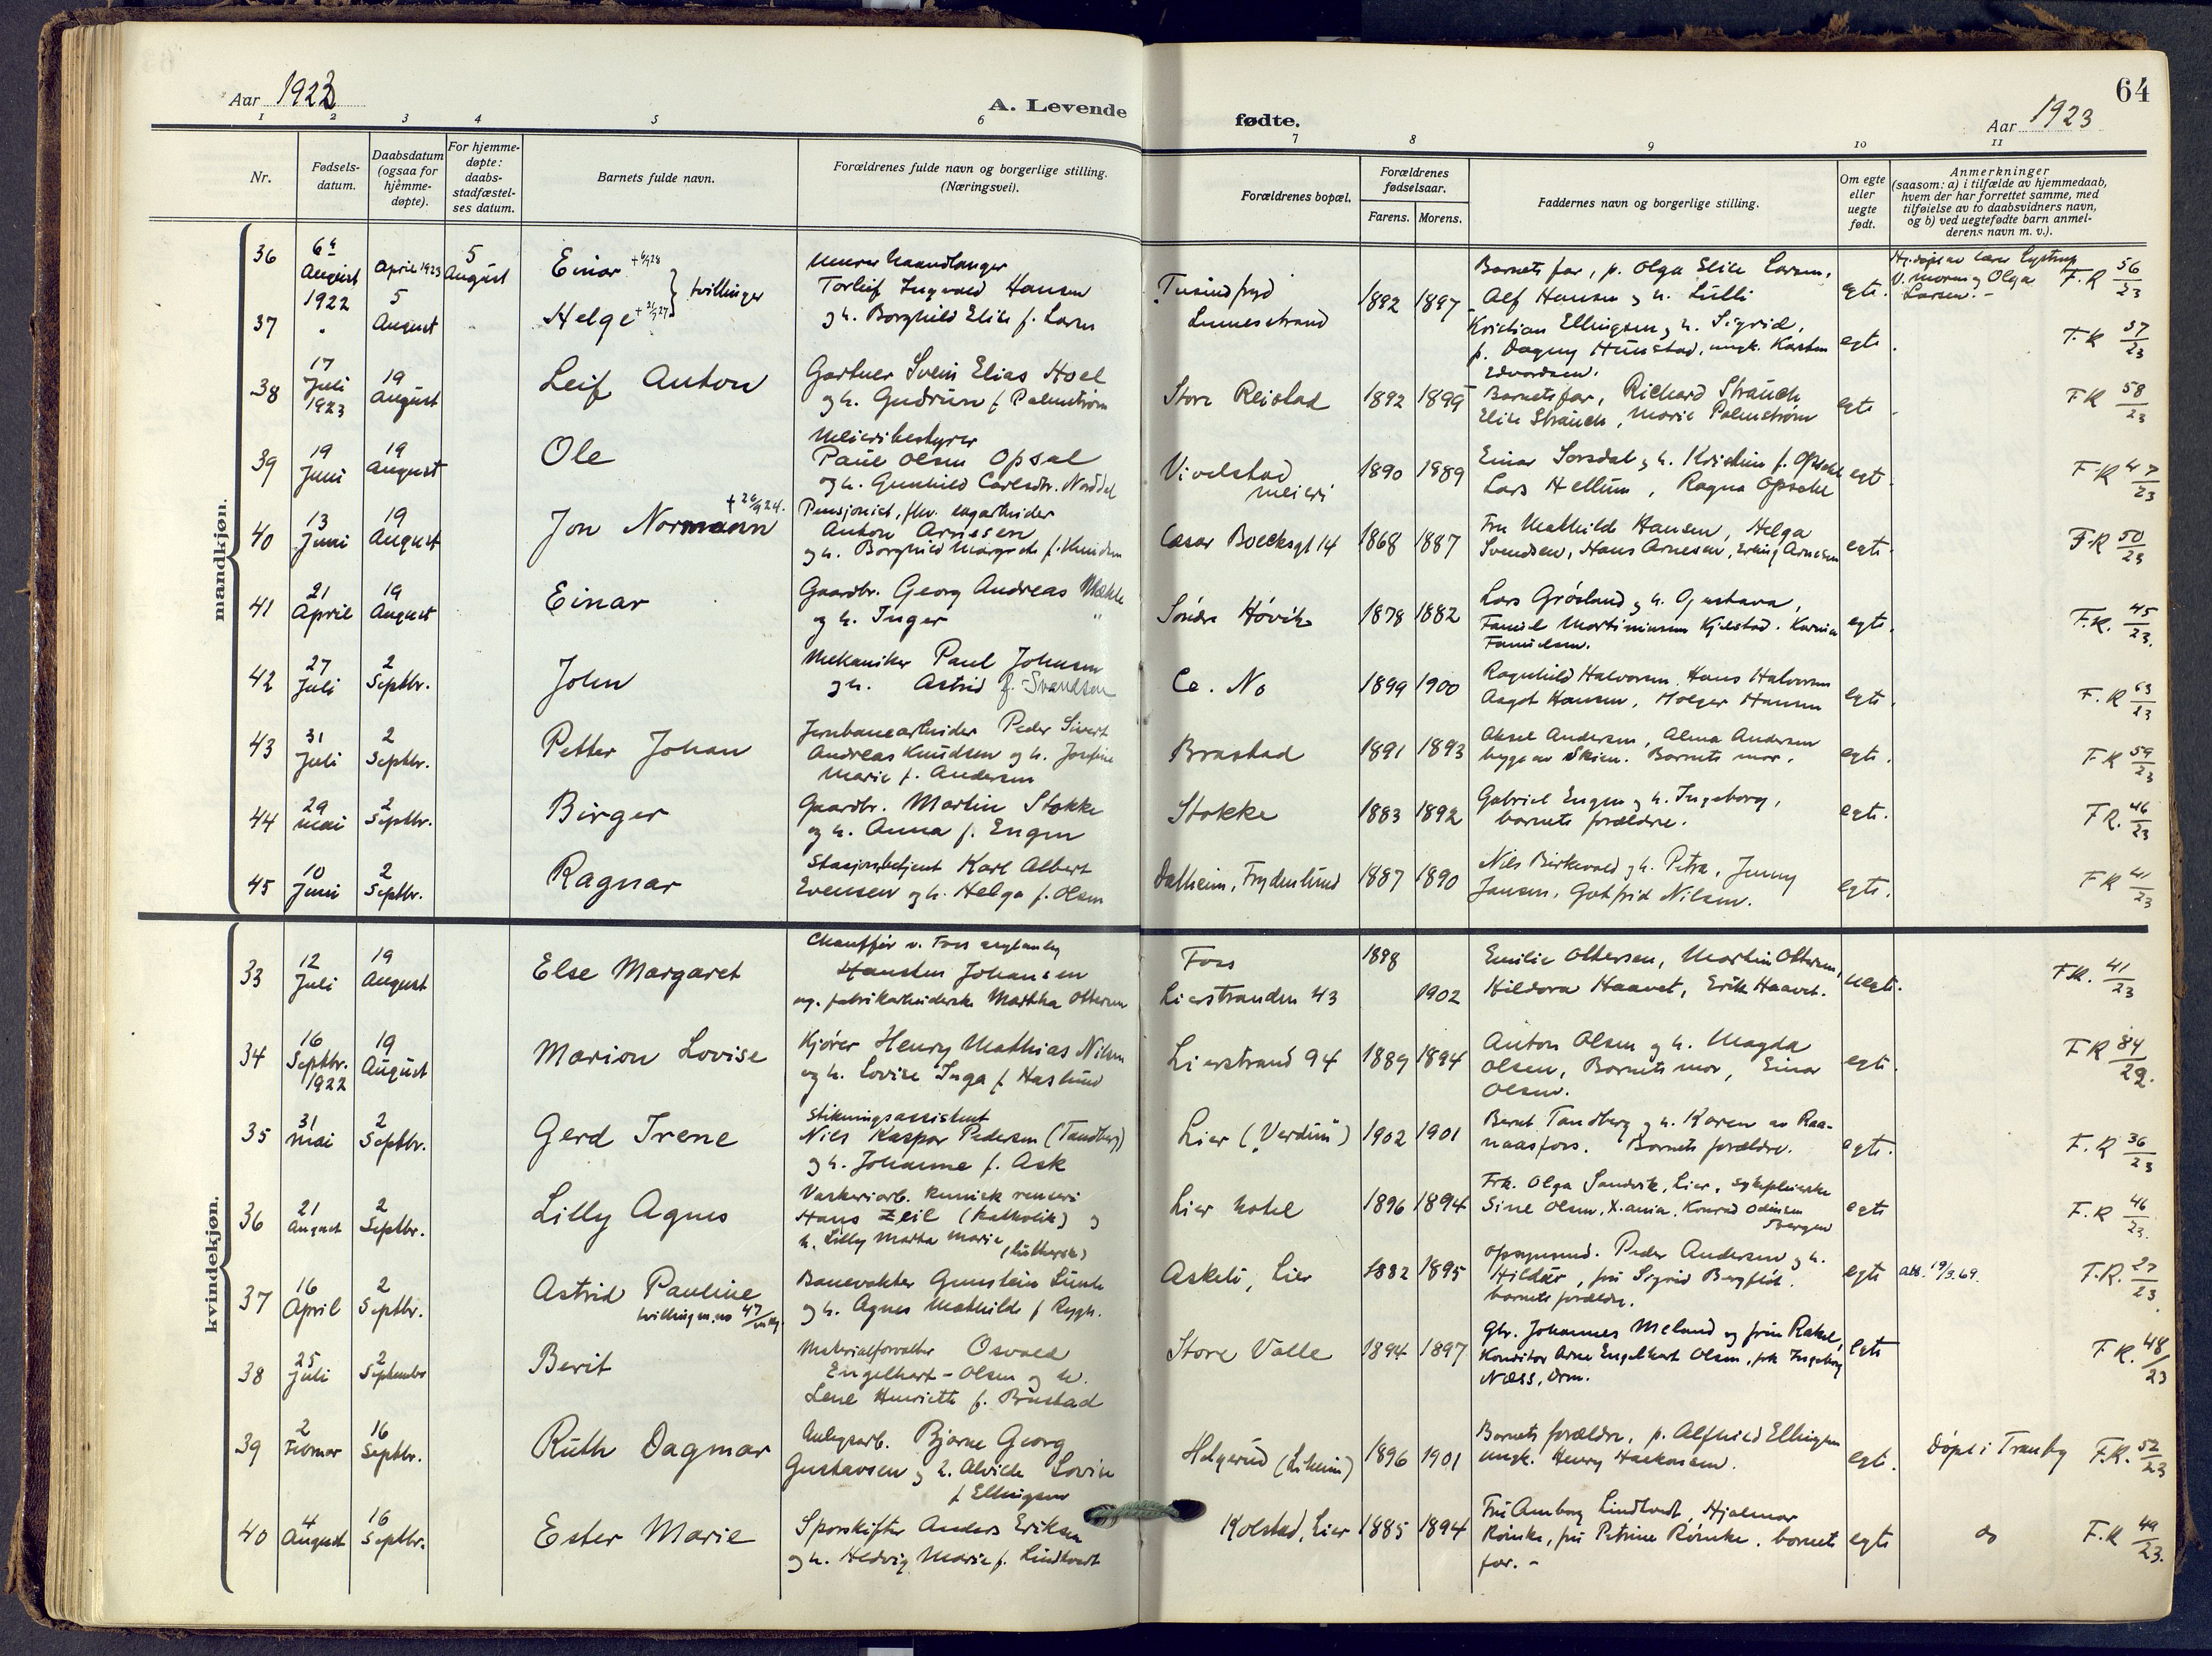 64
Aar 1923
A. Levende fødte.
Aar 1923
1 2 3 4 5 6 7 8 9 10 11
Nr.
Fødsels-
datum.
Daabsdatum
(ogsaa for
hjemme-
døpte).
For hjemme-
døpte:
daabs-
stadfæstel-
ses datum.
Barnets fulde navn.
Forældrenes fulde navn og borgerlige stilling.
(Næringsvei).
Forældrenes bopæl.
Forældrenes
fødselsaar.
Farens. Morens.
Faddernes navn og borgerlige stilling.
Om egte
eller
uegte
født.
Anmerkninger
(saasom: a) i tilfælde av hjemmedaab,
hvem der har forrettet samme, med
tilføielse av to daabsvidners navn,
og b) ved uegtefødte barn anmel-
derens navn m. v.).
mandkjøn.
36
August
1922
April 1923
5
August
Einar
tvillinger
Murerhaandlanger
Torleif Ingvald Hansen
og h. Borghild Elise f. Larsen
Tusindfryd
Linnesstrand
1892 1897
Barnets far, p. Olga Elise Larsen,
Alf Hansen og h. Lulli
egte.
Olga
Larsen. -
F.R 56/23
37
5
August
Helge
Kristian Ellingsen og h. Sigrid,
p. Dagny Hunstad, ungk. Karsten
Edvardsen.
egte.
F.R 57/23
38
17
Juli
1923
19
August
Leif Anton
Gartner Svein Elias Hoel
og h. Gudrun f. Palmstrøm
Store Reistad
1892 1899
Barnets far, Richard Strauch
Elise Strauch, Marie Palmstrøm
egte
F R 58/23
39
19
Juni
19
August
Ole
Meieribestyrer
Paul Olsen Opsal
og h. Gunhild Carlsdtr. Norddal
Vivelstad
meieri
1890 1889
Einar Sørsdal og h. Kristine f. Opsahl
Lars Hellum, Ragna Opsahl
egt
F R 47/23
40
13
Juni
19
August
Jon Normann
Pensjonist, fhv. lagarbeider
Anton Arnesen
og h. Borghild Margrethe f. Knudsen
Cæsar Boecksgt 14
1868 1887
Fru Mathilde Hansen, Helga
Svendsen, Hans Arnesen, Erling Arnesen
egte
F.R 50/23
41
21
April
19
August
Einar
Gaardbr. Georg Andreas
og h. Inger "
Søndre Høvik
1878 1882
Lars Grøsland og h. Gustava,
Martiniussen Kjelstad. Karnia
egte.
F.R. 45/23.
42
27
Juli
2
Septbr.
John
Mekaniker Paul Johnsen
og h. Astrid f. Svendsen
Ce. No
1899 1900
Ragnhild Halvorsen. Hans Halvorsen
Aagot Hansen, Holger Hansen
egte.
F.R 63/23
43
31
Juli
2
Septbr.
Petter Johan
Jernbanearbeider Peder Sivert
Andreas Knudsen og h. Josefine
Marie f. Andersen
Brastad
1891 1893
Aksel Andersen, Alma Andersen
begge av Skien. Barnets mor.
egte.
F R 59/23
44
29
Mai
2
Septbr.
Birger
Gaardbr. Martin Stokke
og h. Anna f. Engen
Stokke
1883 1892
Gabriel Engen og h. Ingeborg,
barnets forældre.
egte.
F R. 46/23
45
10
Juni
2
Septbr.
Ragnar
Stasjonsbetjent Karl Albert
Evensen og h. Helga f. Olsen
Dalheim, Frydenlund
1887 1890
Nils Birkevold og h. Petra, Jenny
Jansen, Gotfrid Nilsen.
egte.
F R 41/23
kvindekjøn.
33
12
Juli
19
August
Else Margaret
Chauffør v. Foss
Johansen
ug. fabrikarbeiderske Martha Ottersen
Foss
Lierstranden 43
1898
1902
Emilie Ottersen, Martin Ottersen,
Hildora Haavet, Erik Haavet.
uegte.
F.R. 41/23
34
16
Septbr.
1922
19
August
Marion Lovise
Kjører Henry Mathias Nilsen
og h. Lovise Inga f. Haslund
Lierstrand 94
1889 1894
Anton Olsen og h. Magda
Olsen, Barnets mor, Einar
Olsen.
egte.
F R 84/22.
35
31
Mai
2
Septbr.
Gerd Irene
Stikningsassistent
Nils Kaspar Pedersen (Tandberg)
og h. Johanne f. Ask
Lier („Verdun")
1902 1901
Bernt Tandberg og h. Karen av Raa-
naasfoss. Barnets forældre.
egte.
F.R 36/23
36
21
August
2
Septbr.
Lilly Agnes
Vaskeriarb. kemisk renseri
Hans Zeil (katholik) og
h. Lilly Marta Marie (luthersk)
Lier hotel
1896 1894
Frk. Olga Sandvik, Lier, sykepleierske
Sine Olsen, X.ania. Konrad Odinsen
egte
F.R 46/23.
37
16
April
2
Septbr.
Astrid Pauline
Banevokter Gunstein Lunde
og h. Agnes Mathilde f Rygh.
Askeli, Lier
1882 1895
Opsynsmd. Peder Andersen og h.
Hildur, fru Sigrid Bergfløt.
barnets forældre.
egte
att. 19/3.69.
F.R. 27/23.
38
25
Juli
2
September
Berit
Materialforvalter Osvald
Engelhart-Olsen og h.
Lene Henriette f. Brustad
Store Valle
1894 1897
Gbr. Johannes Meland og frue Rakel,
Konditor Arne Engelhart Olsen, frk Ingeborg
Næss, Drm.
egte
F R. 48/23
39
2
Februar
16
Septbr.
Ruth Dagmar
Anlegsarb. Bjarne Georg
Gustavsen og h. Alvilde Lovise
f Ellingsen
Helgerud
1896 1901
Barnets forældre, p. Alfhild Ellingsen
ungk. Henry Haakonsen.
egte.
Døpt i Tranby
F.R. 52/23
40
4
August
16
Septbr.
Ester Marie
Sporskifter Anders Eriksen
og h. Hedvig Marie f. Lindtvedt
Kolstad, Lier
1885 1894
Fru Amborg Lindtvedt, Hjalmar
Rømke, fru Petrine Rømke. barnets
far. -
egte
do
F.R 49/23.